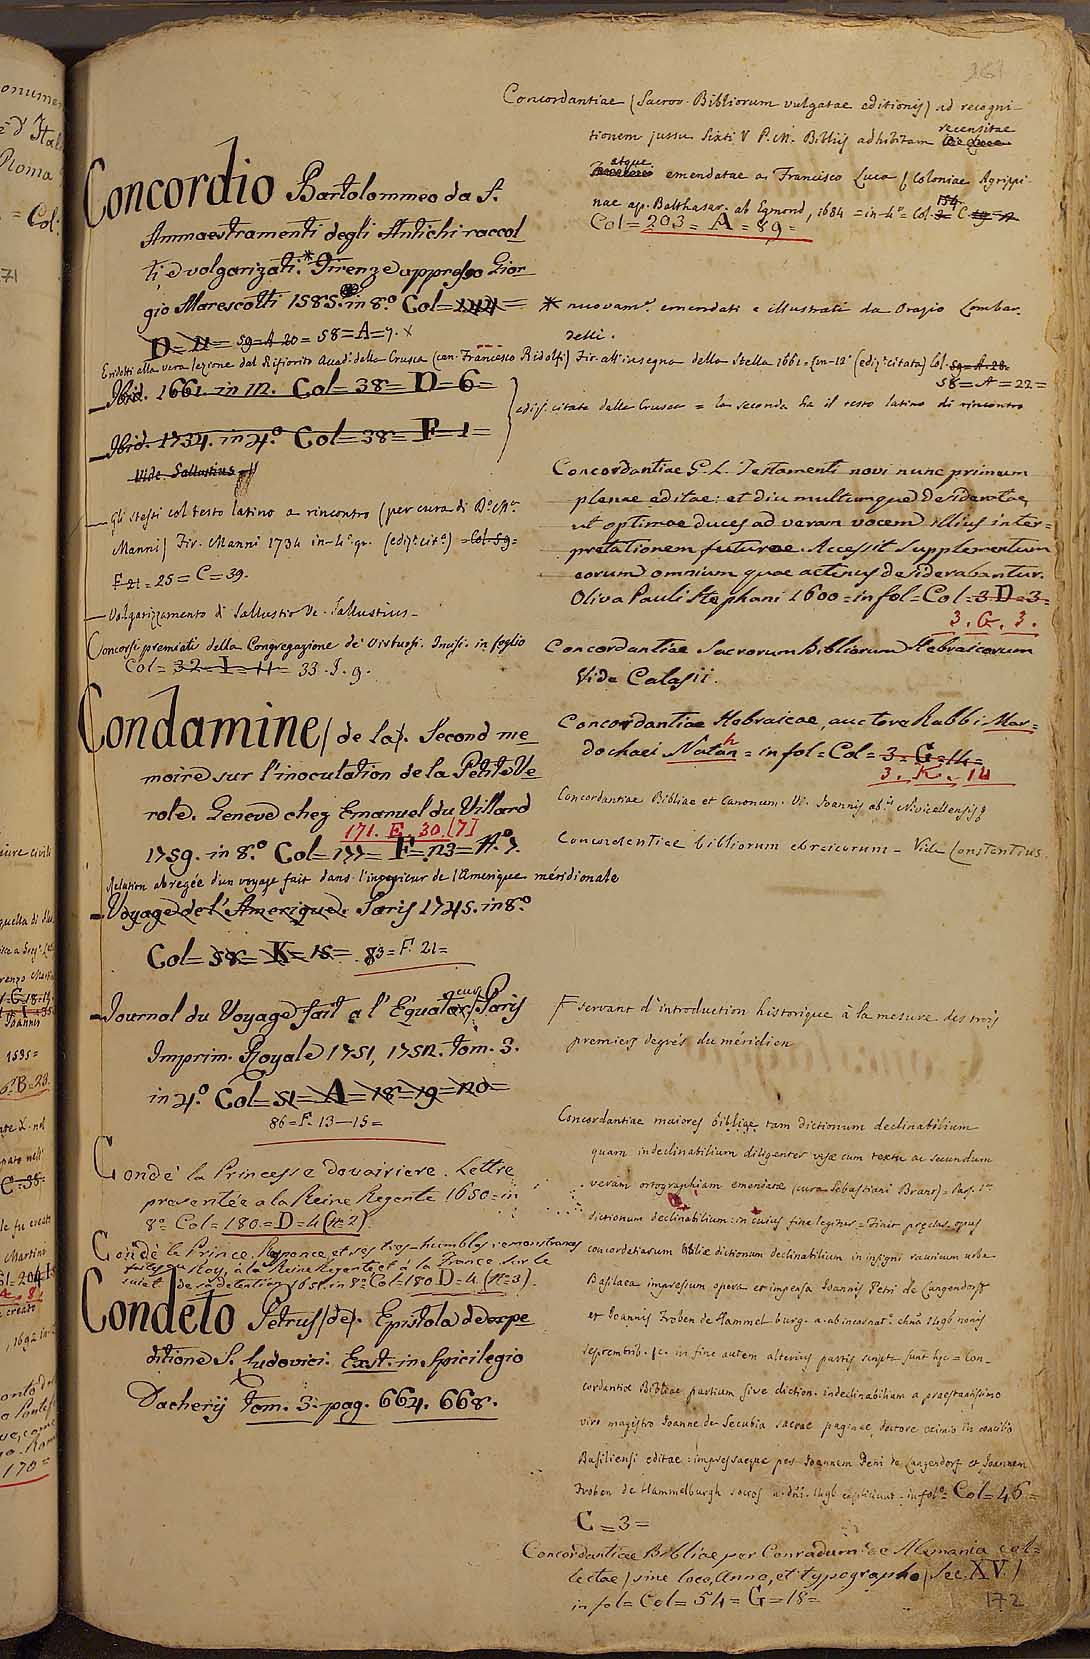 Concordio Bartolommeo da S.
Ammaestramenti degli Antichi raccol
ti, e volgarizati.* Firenze appresso Gior
gio Marescotti 1585. in 8.o Col=
D=11= 59=A 20= 58=A=7. x
Ridotti alla vera lezione dal Rifiorito Accad.o della Crusca (can. Francesco Ridolfi) Fir. all'insegna della Stella 1661 = in-12.o (ediz. citata) Col. 59=A=28=
58=A=22=
Ibid. 1661. in 12. Col=38=D=6=
Ibid. 1734. in 4.o Col=38=F=1=
edizi. citate dalla Crusca = la seconda ha il testo latino di rincontro
Vide Sallustius
gli stessi col testo latino a rincontro (per cura di D.o M.a
Manni) Fir. Manni 1734 in-4.o gr. (ediz.e cit.a) =Col 59=
F 21 = 25 = C = 39.
Volgarizzamento di Sallustio V. Sallustius
Concorsi premiati della Congregazione de' Virtuosi. Incisi. in foglio
Col = 32=I=11= 33. I. 9.
Condamine (de la). Second me
moire sur l'inoculation de la Petite Ve
role. Geneve chez Emanuel du Villard
171. E. 30. [7]
1759. in 8.o Col=177= F=123= N.o 7.
Relation abregée d'un voyage fait dans l'interieur de l'Amerique méridionale
Voyage de l'Amerique. Paris 1745. in 8.o
Col=58= K=15= 83=F. 21=
Journal du Voyage fait a l'Équateur F Paris
Imprim. Royale 1751, 1752. Tom. 3.
in 4.o Col=51=A=18=19=20=
86=F. 13-15=
Condé la Princesse douairiere. Lettre
presentée a la Reine Regente 1650= in
8.o Col=180=D=4 (n.o 2)
Condé le Prince, Reponce, et ses tres-humbles remonstrances
faites au Roy, à la Reine Regente, et à la France sur le
sujet de sa detention 1651. in 8.o Col=180 D=4. (N.o 3).
Condeto Petrus (de). Epistola de expe
ditione S. Ludovici. Exst. in Spicilegio
Dacherij Tom. 3. pag. 664. 668.
Concordantiae (Sacror. Bibliorum vulgatae editionis) ad recogni-
tionem jussu Sixti V P. M. Bibliis adhibitam recensitae
atque emendatae a Francisco Luca / Coloniae Agrippi
nae ap. Balthasar. ab Egmond, 1684 = in-4.o = Col 154. C
Col=203= A=89=
* nuovam.e emendati e illustrati da Orazio Lombar.
delli.
Concordantiae G. L. Testamenti novi nunc primum
plenae editae: et diu multumque desideratae,
ut optimae duces ad veram vocem illius inter=
pretationem futurae. Accessit Supplementum
eorum omnium quae actenus desiderabantur.
Oliva Pauli Stephani 1600= in fol= Col=3 D=3=
3. G. 3.
Concordantiae Sacrorum Bibliorum Hebraicorum
Vide Calasii.
Concordantiae Hebraicae, auctore Rabbi Mar=
dochaei Nathan = in fol= Col= 3=G=14=
3. K. 14
Concordantiae Bibliae et Canonum. V. Joannis ab.is Nivicellensis
Concordantiae bibliorum ebraicorum - Vide Constantius
F servant d'introduction historique à la mesure des trois
premiers degrés du méridien
Concordantiae maiores bibliae tam dictionum declinabilium
quam indeclinabilium diligenter visae cum textu ac secundum
veram ortographiam emendatae (cura Sebastiani Brant) = Pars. 1.a
dictionum declinabilium: in cuius fine legitur = Finit praeclar. opus
concordatiarum bibliae dictionum declinabilium in insigni rauricum urbe
Basilaea impressum opera et impensa Joannis Petri de Langendorff
et Joannis Froben de Hammelburg. a. ab incarnat. chri 1496 nonis
septembrib. &c. in fine autem alterius partis script. sunt haec = Con-
cordantiae Bibliae partium sive diction. indeclinabilium a praestantissimo
viro magistro Joanne de Secubia sacrae paginae doctore eximio in concilio
Basiliensi editae: impressaeque per Joannem Petri de Langendorf et Joannem
Froben de Hammelburgh socios a. dni. 1496 expliciunt - in fol.o= Col=46=
C=3=
Concordantiae Bibliae per Conradum de Alemania col=
lectae / sine loco, Anno, et typographo / Sec. XV. /
in fol= Col= 54= G=18=
172